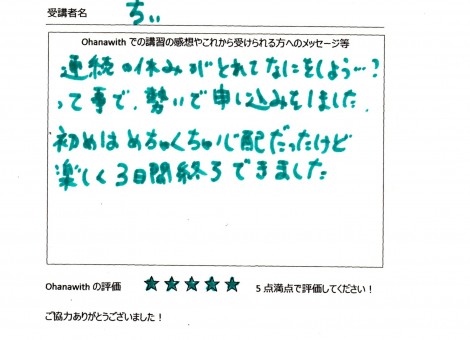 受講者名 ちぃ
Ohanawith での講習の感想やこれから受けられる方へのメッセージ等
連続の休みがとれてなにをしよう…?
って事で、勢いで申し込みをしました。
初めは めちゃくちゃ心配だったけど
楽しく3日間終ろできました
Ohanawith の評価 ★★★★★ 5 点満点で評価してください！
ご協力ありがとうございました！